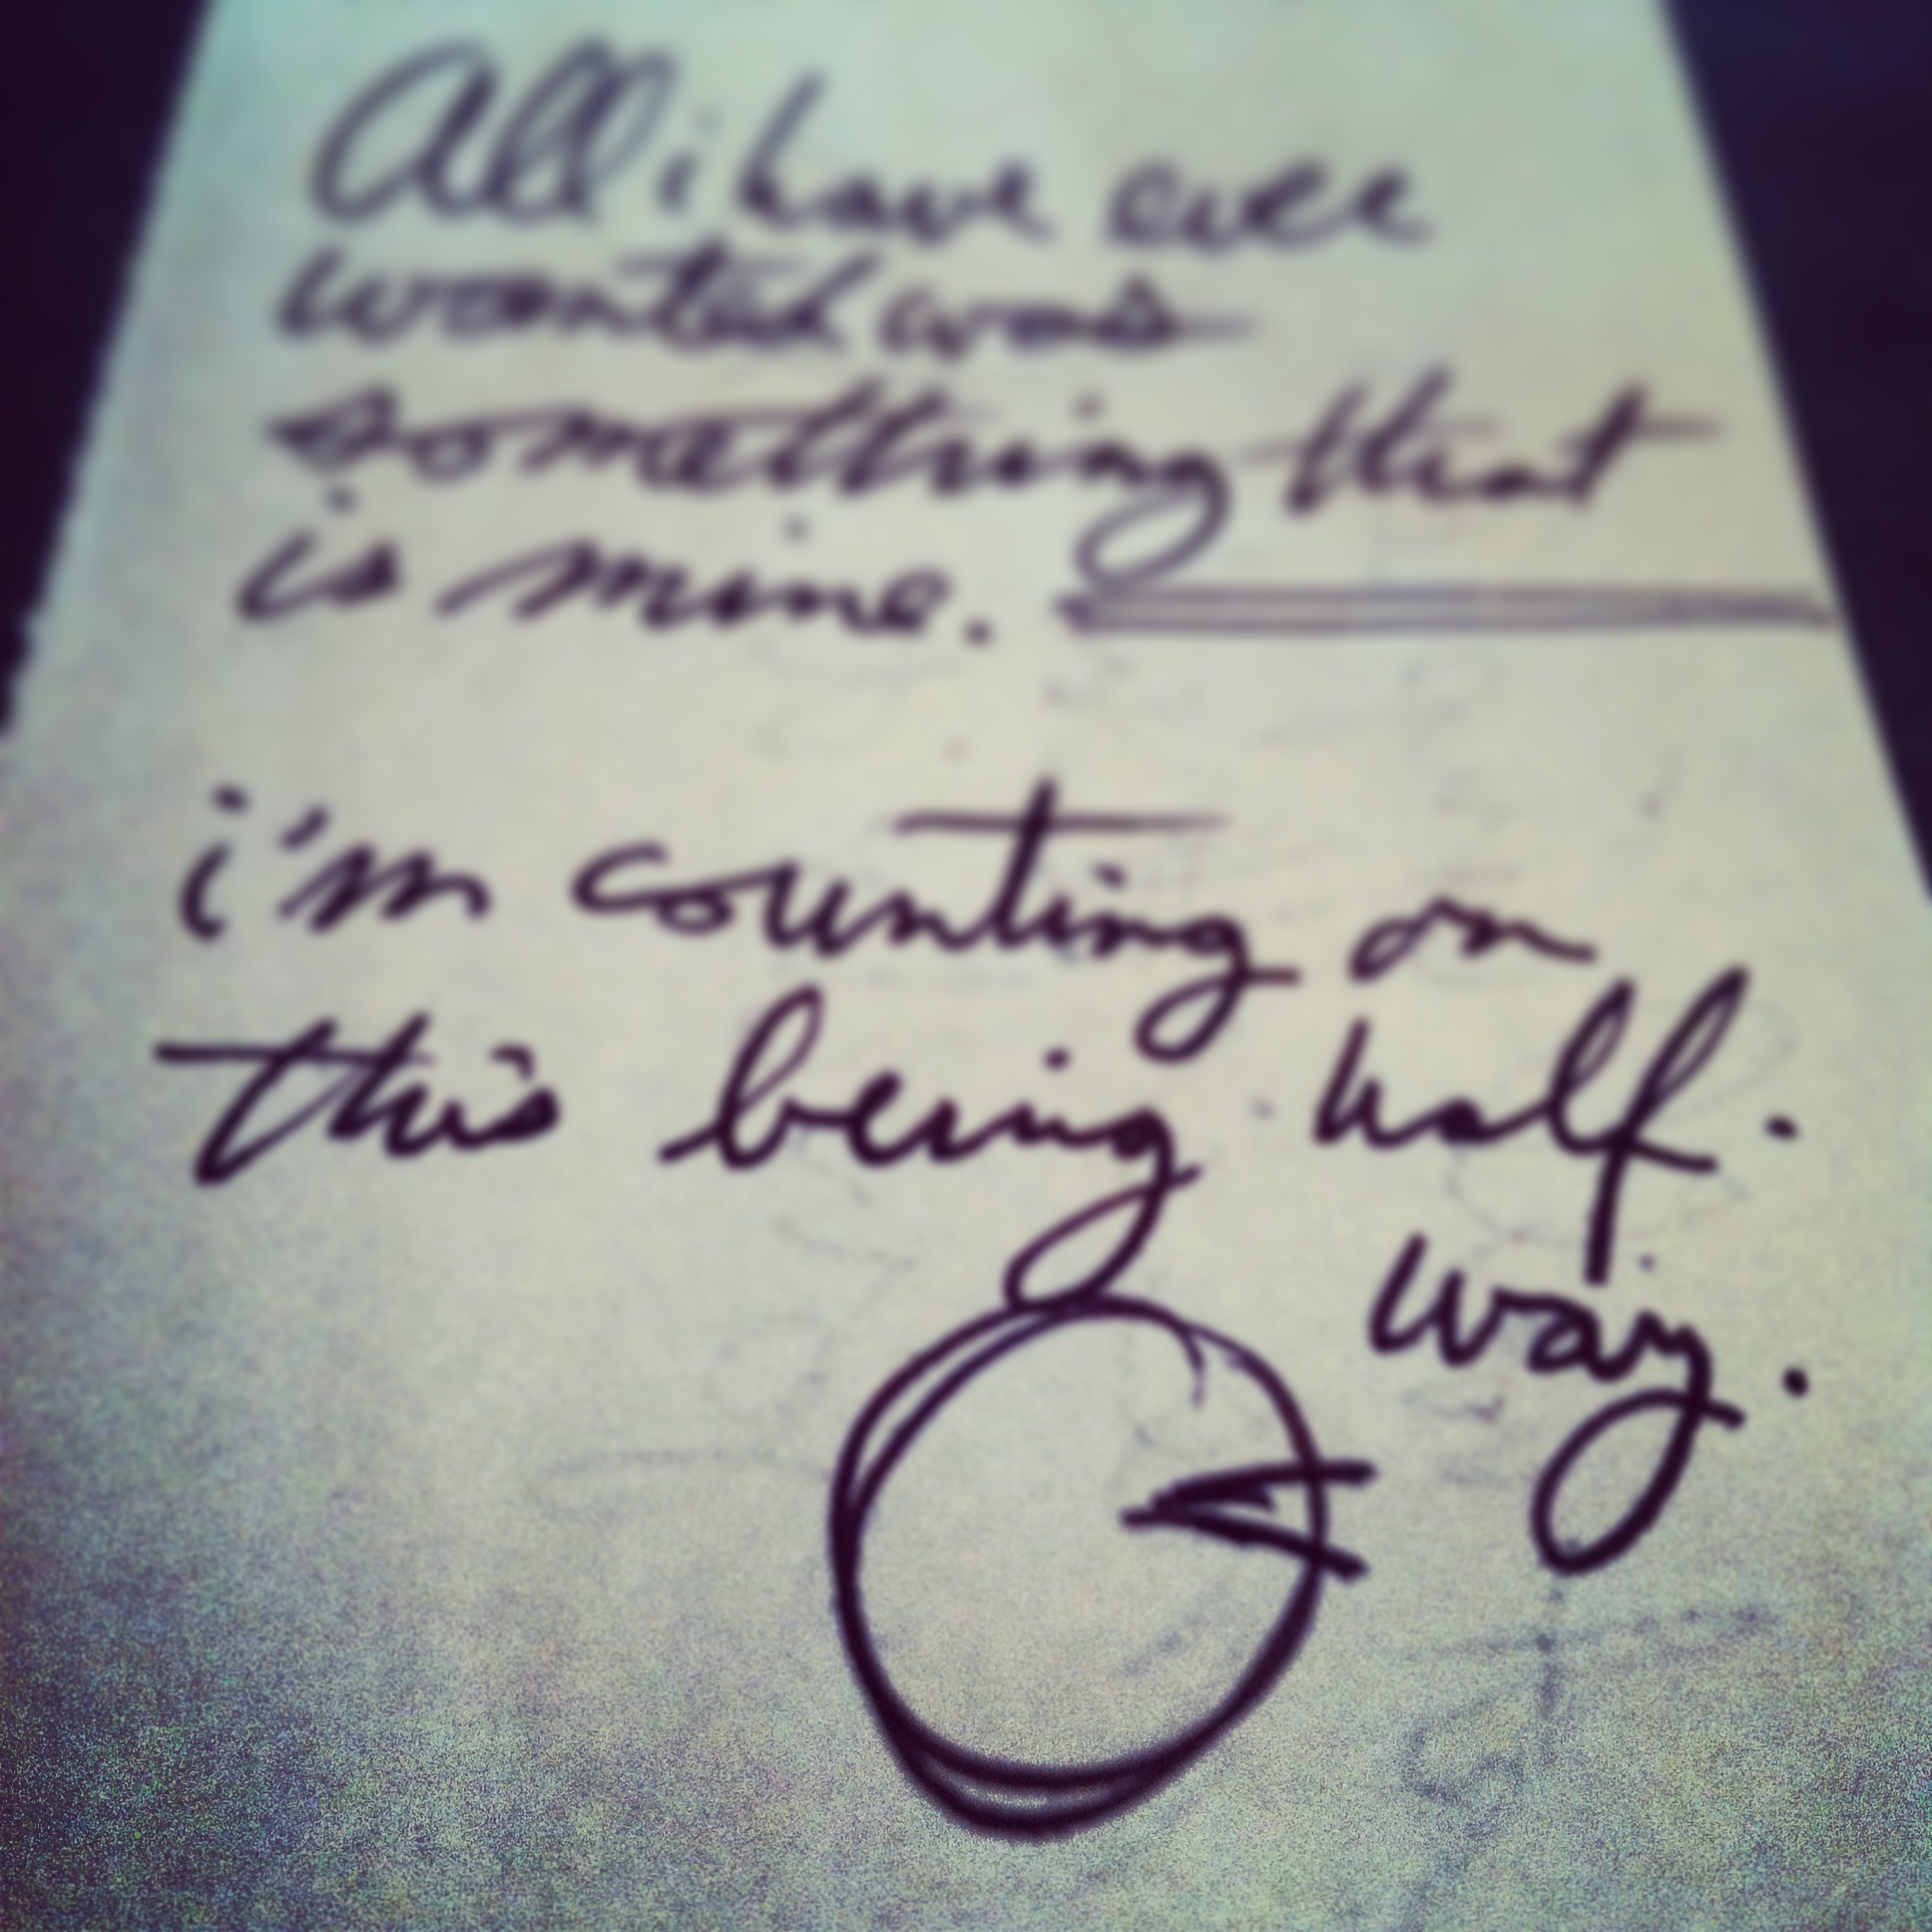 All i have ever
wanted was
something that
is mine.
i'm counting on
this being half.
way.